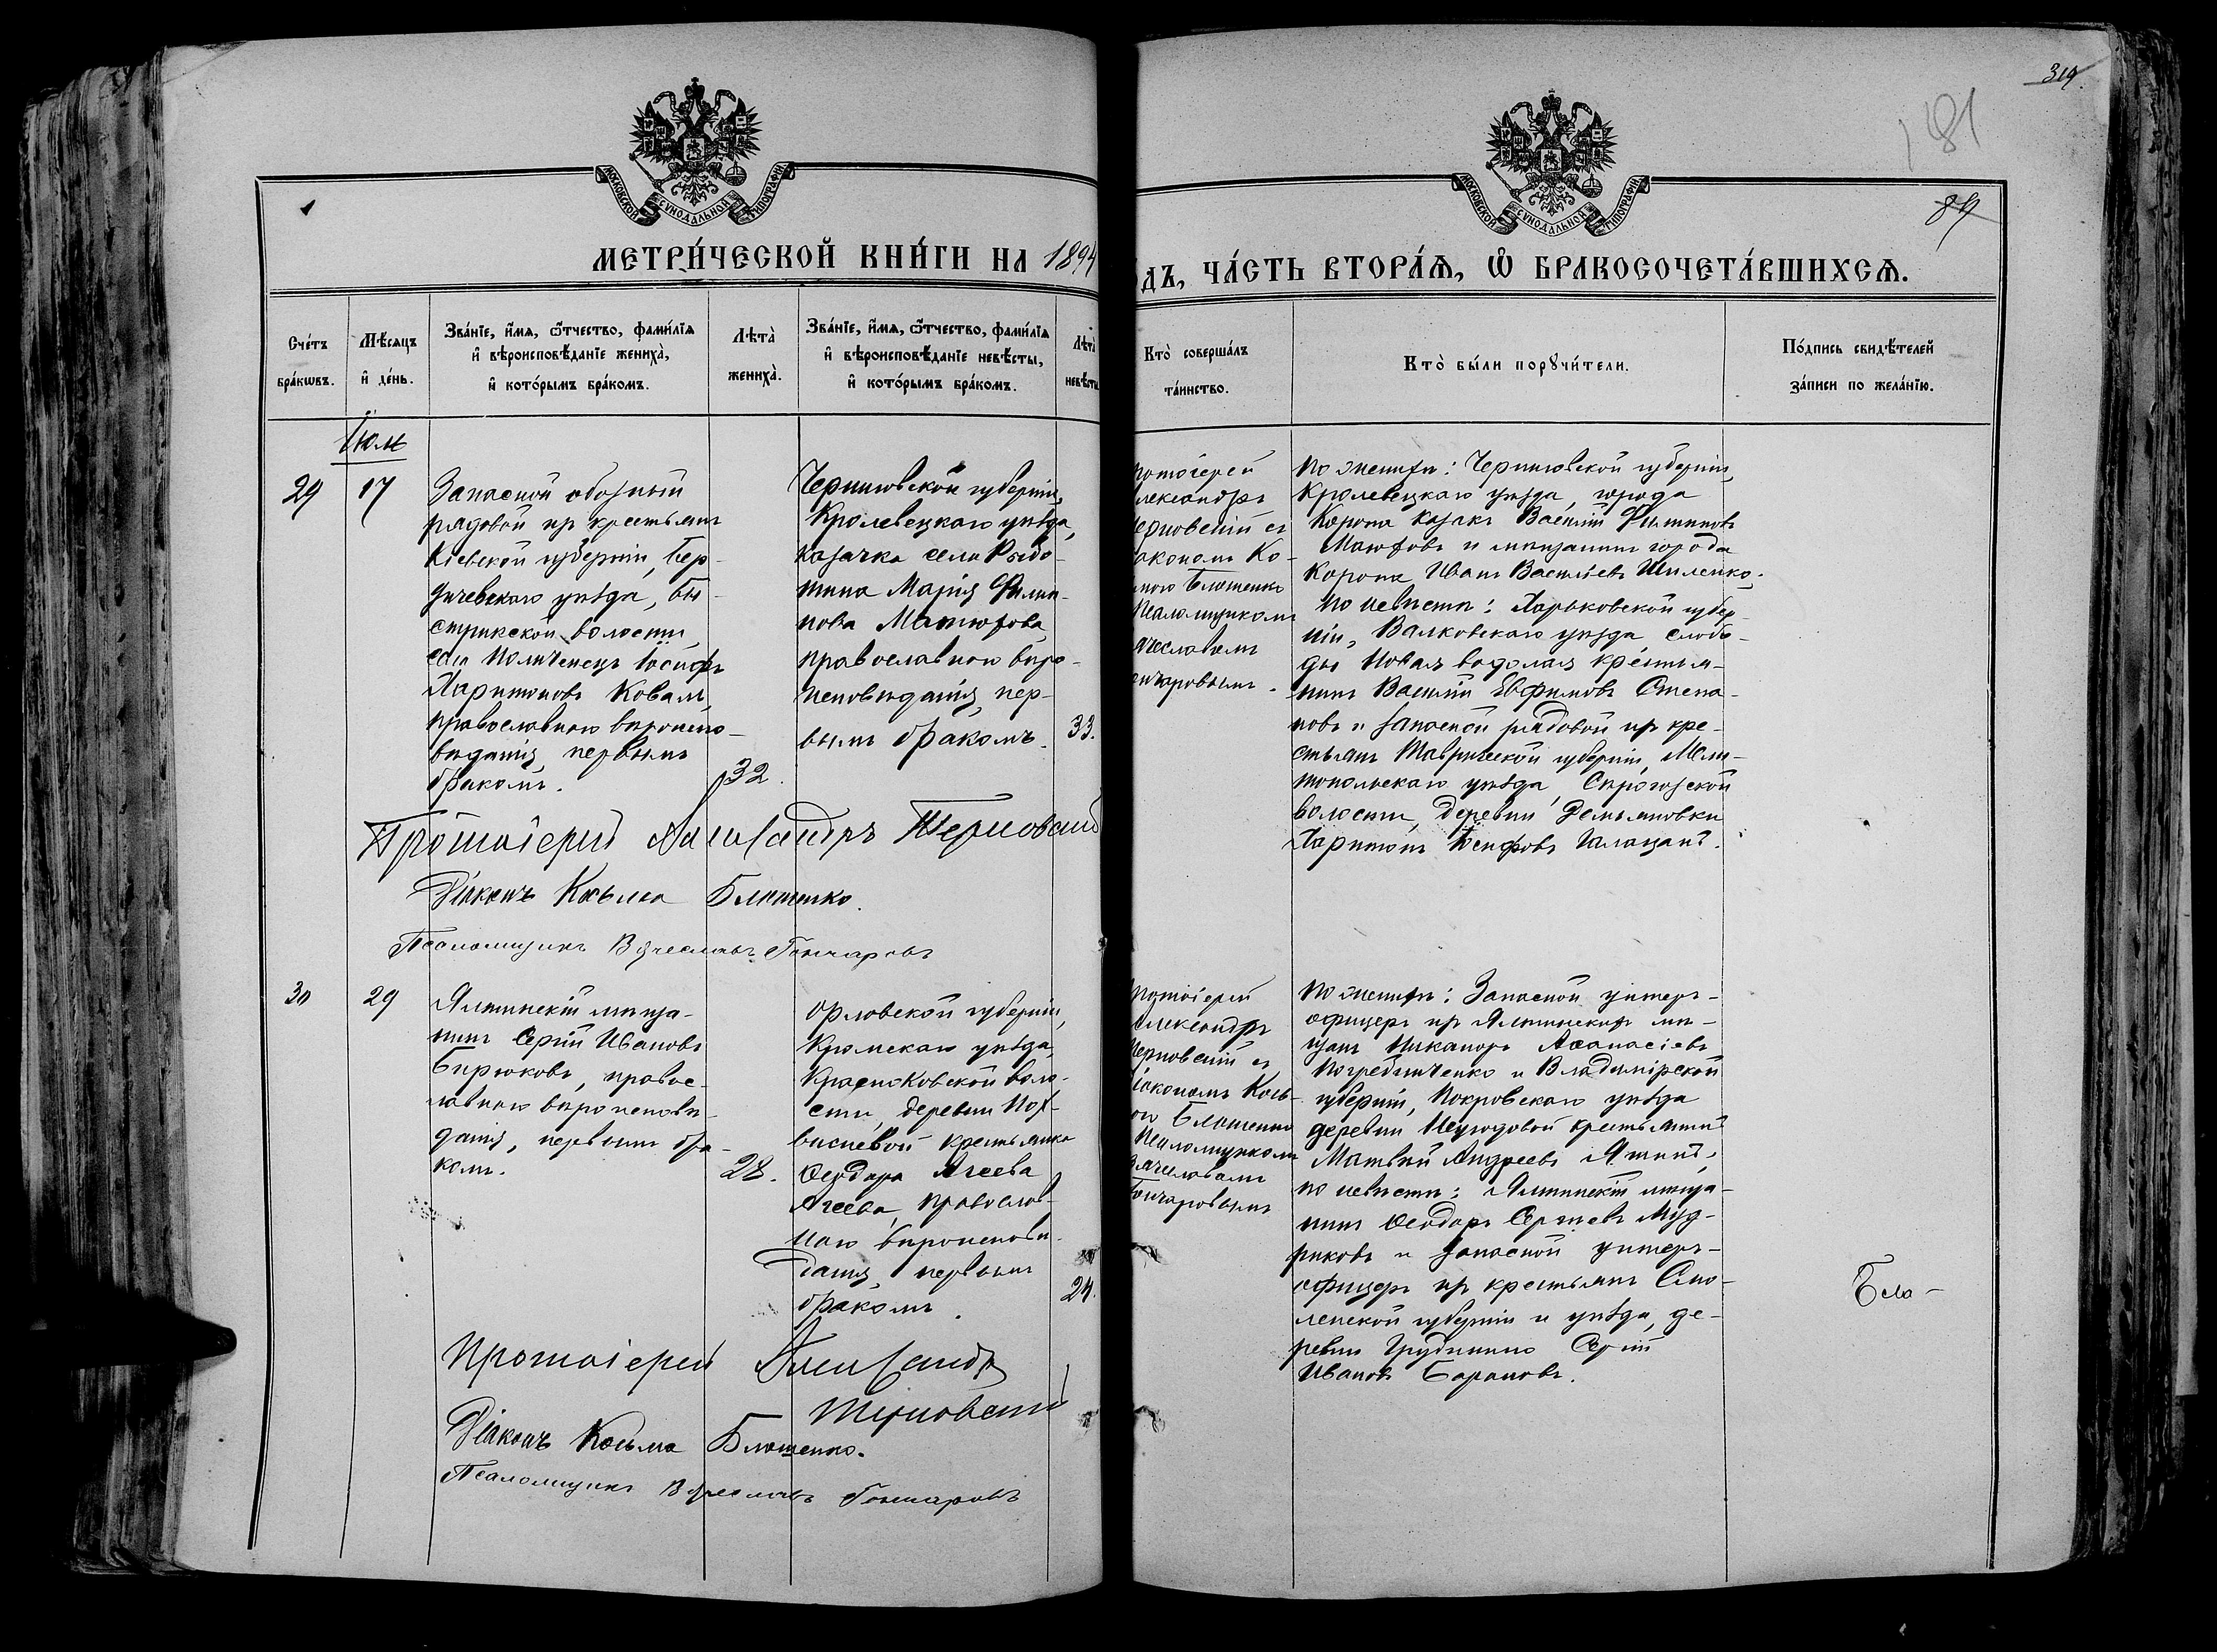 319.
181
89
МОСКОВСКОЙ СѴНОДАЛЬНОЙ ТИПОГРАФІИ
МОСКОВСКОЙ СѴНОДАЛЬНОЙ ТИПОГРАФІИ
МЕТРИ́ЧЕСКОЙ КНИ́ГИ НА 1894
ДЪ, ЧА́СТЬ ВТОРА́Ѧ, Ѡ҆ БРАКОСОЧЕТА́ВШИХСѦ.
Сче́тъ бра́кѡвъ.
Мѣ́сяцъ и҆ де́нь.
Зва́нїе, и҆́мя, ѻ҆́тчество, фами́лїя
и҆ вѣроисповѣ́данїе жениха̀,
и҆ кото́рымъ бра́комъ.
Лѣта̀
жениха̀.
Зва́нїе, и҆́мя, ѻ҆́тчество, фами́лїя
и҆ вѣроисповѣ́данїе невѣ́сты,
и҆ кото́рымъ бра́комъ.
Лѣта̀
невѣ́сты
Кто̀ соверша́лъ
та́инство.
Кто̀ бы́ли порꙋчи́тели.
По́дпись свидѣ́телей
за́писи по жела́нїю.
Іюль
29
17
Запасной обозный
рядовой изъ крестьянъ
Кіевской губерніи, Бер-
дичевскаго уѣзда, Бы-
стрикской волости,
села Поличенецъ Іосифъ
Харитоновъ Коваль,
православнаго вѣроиспо-
вѣданія, первымъ
бракомъ.
32.
Черниговской губерніи,
Кролевецкаго уѣзда,
казачка села Рыбо-
тина Марія Филип-
пова Матюхова,
православнаго вѣро-
исповѣданія, пер-
вымъ бракомъ.
33.
ротоіерей
лександръ
ерновскій съ
акономъ Ко-
мою Блошенко
псаломщикомъ
ячеславомъ
нчаровымъ.
По женихѣ: Черниговской губерніи,
Кролевецкаго уѣзда, города
Коропа казакъ Василій Филиповъ
Матюховъ и мѣщанинъ города
Коропа Иванъ Васильевъ Шиленко;
по невѣстѣ: Харьковской губер-
ніи, Валковскаго уѣзда слобо-
ды Новая водолага крестья-
нинъ Василій Евфимовъ Степа-
новъ и запасной рядовой изъ кре-
стьянъ Таврической губерніи, Мели-
топольскаго уѣзда, Сирогозской
волости, деревни Демьяновки
Харитонъ Іосифовъ Галаганъ.
Протоіерей Александръ Терновскій
Діаконъ Косьма Блошенко.
Псаломщикъ Вячеславъ Гончаровъ
30
29
Ялтинскій мѣща-
нинъ Сергій Ивановъ
Бирюковъ, правос-
лавнаго вѣроисповѣ-
данія, первымъ бра-
комъ.
28.
Орловской губерніи,
Кромскаго уѣзда,
волo-
сти, деревни Пох-
висневой крестьянка
Ѳеодора Агеева
Агеева, православ-
наго вѣроисповѣ-
данія, первымъ
бракомъ.
24.
ротоіерей
лександръ
Терновскій съ
Діакономъ Кось-
ою Блошенко
псаломщикомъ
Вячеславомъ
Гончаровымъ
По женихѣ: Запасной унтеръ-
офицеръ изъ Ялтинскихъ мѣ-
щанъ Никаноръ Аѳанасіевъ
Погребниченко и Владимірской
губерніи, Покровскаго уѣзда
деревни крестьянинъ
Матвѣй Андреевъ
по невѣстѣ: Ялтинскій мѣща-
нинъ Ѳеодоръ Сергіевъ Муд-
риковъ и запасной унтеръ-
офицеръ изъ крестьянъ Смо-
ленской губерніи и уѣзда, де-
ревни Грудинино Сергій
Ивановъ Барановъ.
Бла-
Протоіерей Александръ
Терновскій
Діаконъ Косьма Блошенко.
Псаломщикъ Вячеславъ Гончаровъ